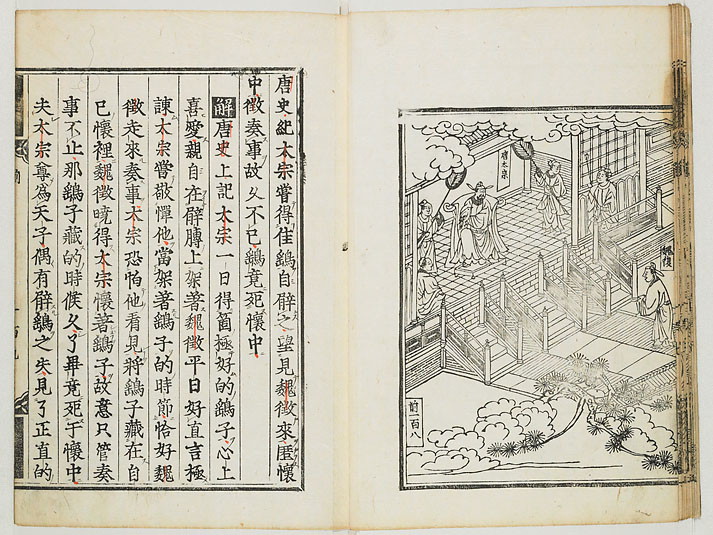 唐太宗
魏徵
前一百八
唐史紀太宗嘗得佳鷂自臂之望見魏徵來匿懷
中徵奏事故久不已鷂竟死懷中
解唐史上記太宗一日得箇極好的鷂子心上
喜愛親自在臂膊上架著魏徵平日好直言極
諫太宗嘗敬憚他當架著鷂子的時節恰好魏
徵走來奏事太宗恐怕他看見將鷂子藏在自
己懷裡魏徵曉得太宗懷著鷂子故意只管奏
事不止那鷂子藏的時候久了畢竟死于懷中
夫太宗尊為天子偶有臂鷂之失見了正直的